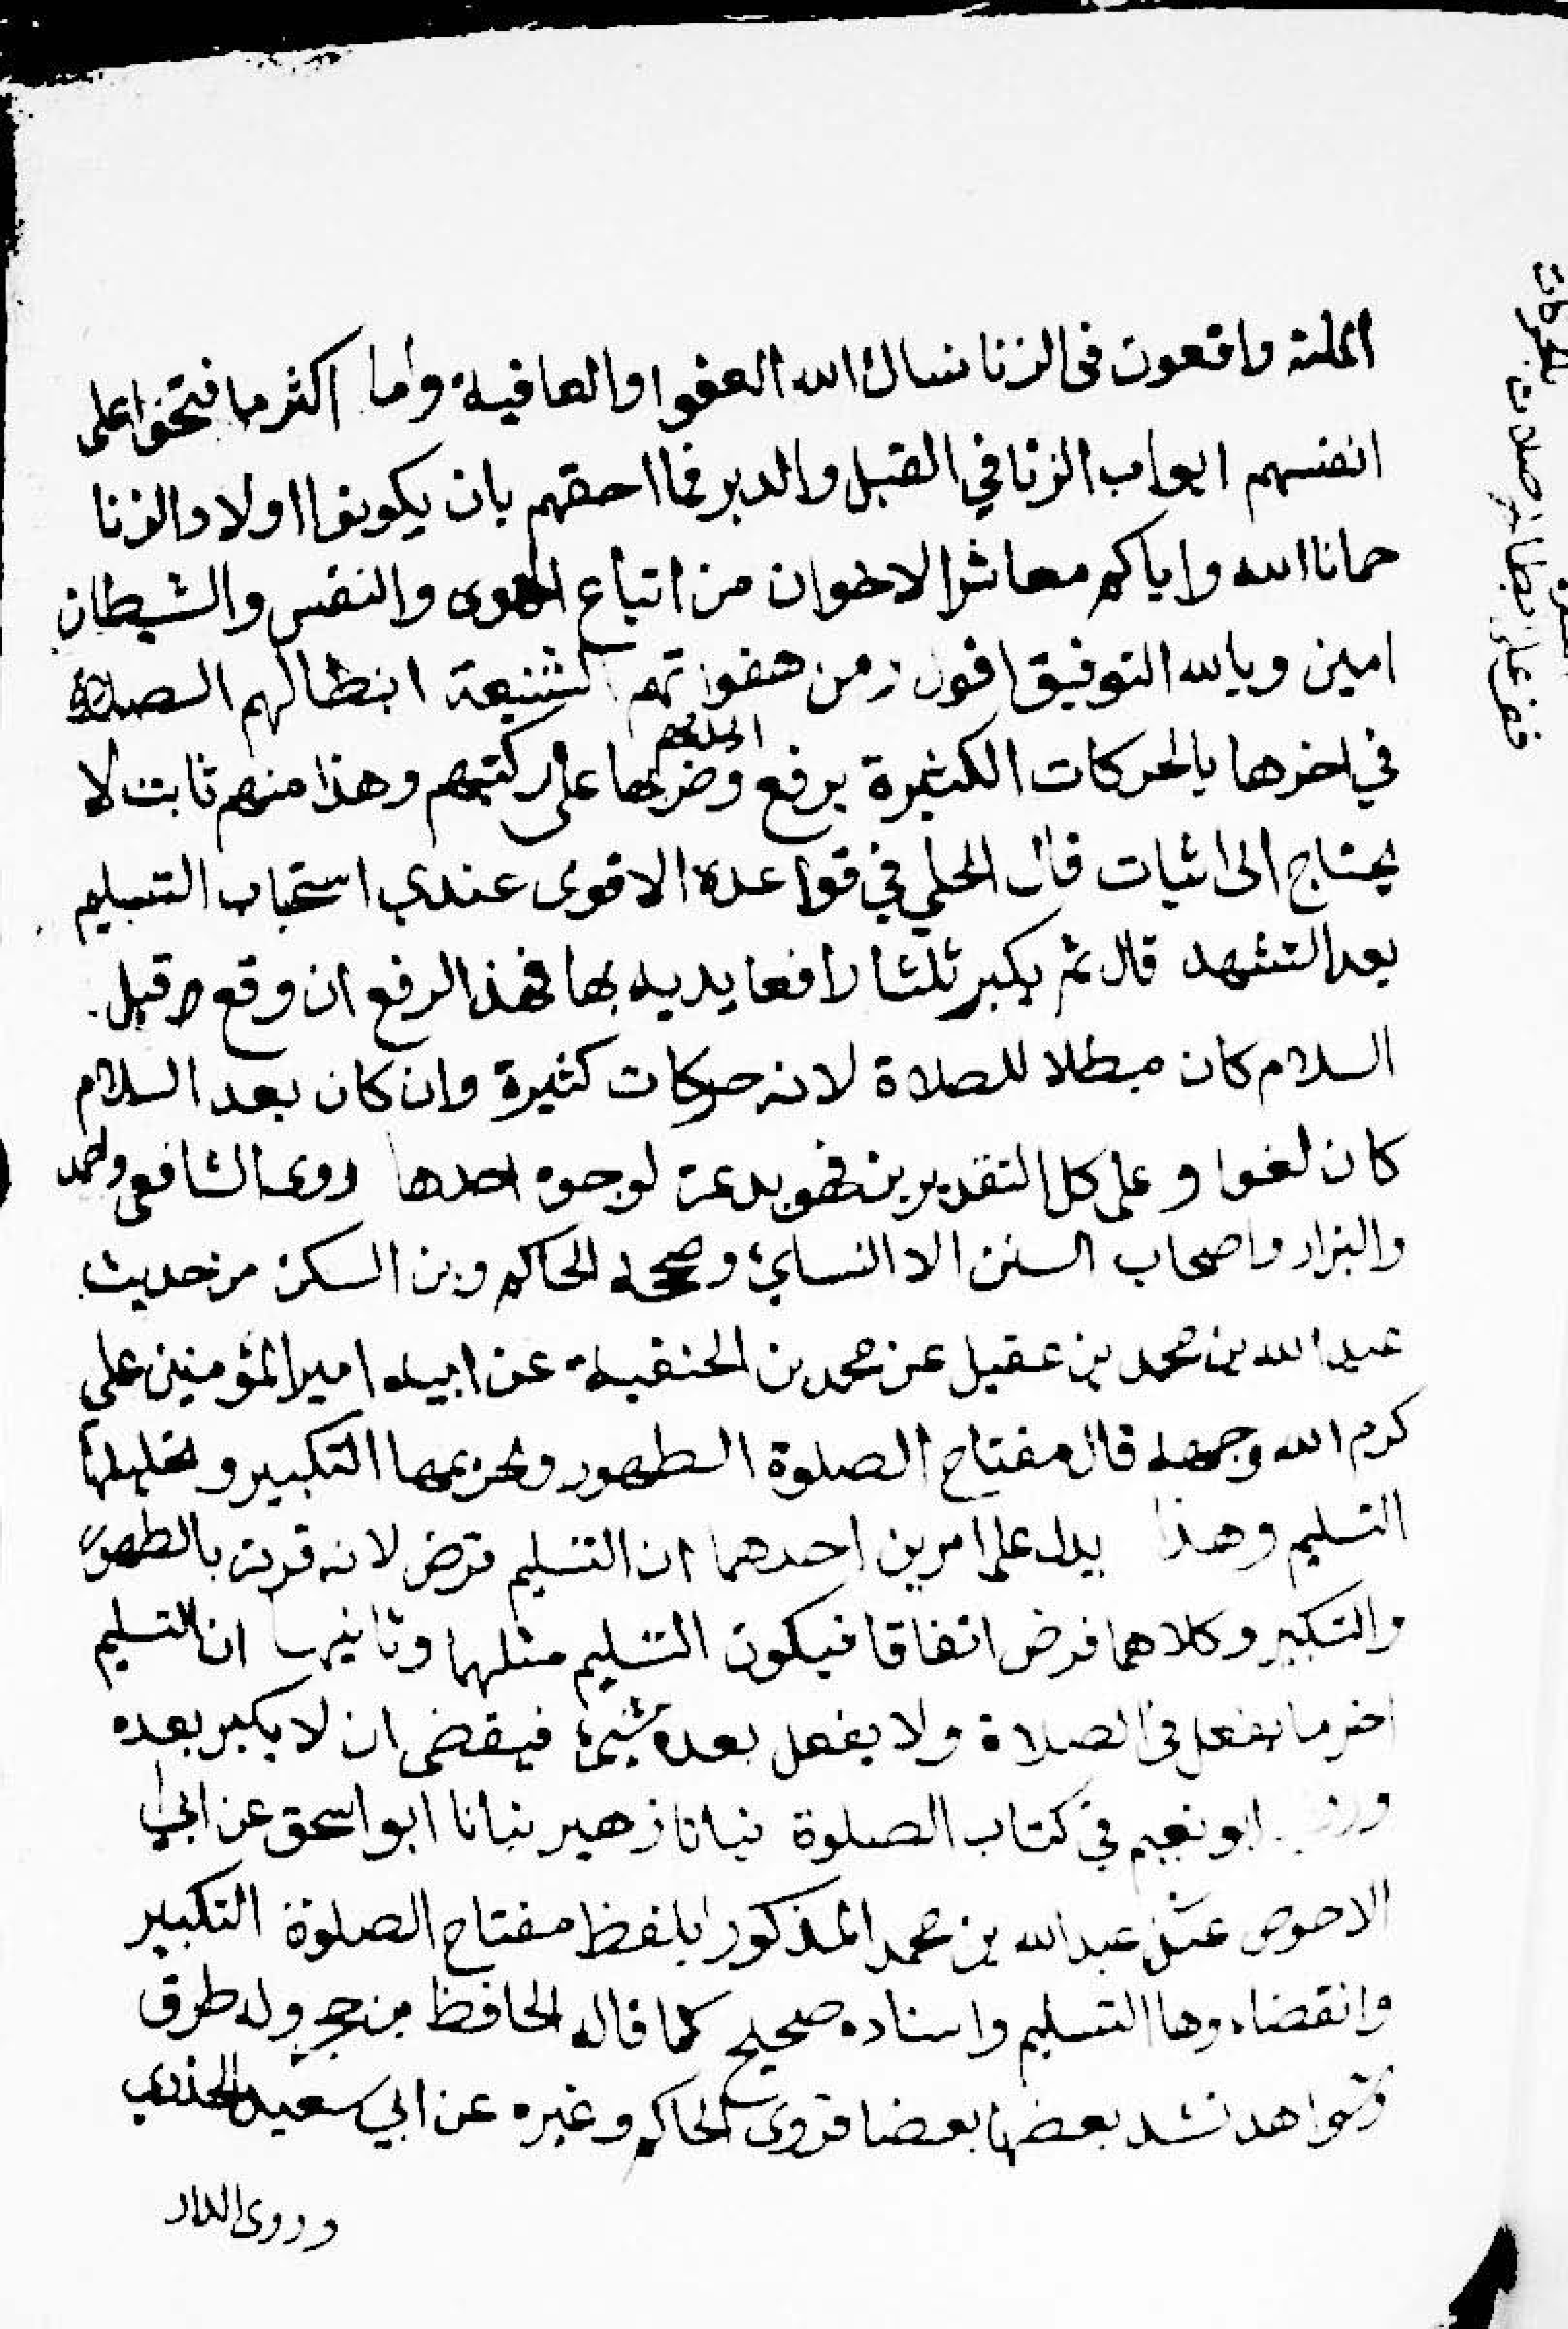 الملة واقعون في الزنا نسال الله العفو والعافية وأما اكثر ما فتحوا على
انفسهم ابواب الزنا في القبل والدبر فما احقهم بان يكونوا اولاد الزنا
حمانا الله واياكم معاشر الاخوان من اتباع الهوى والنفس والشيطان
امين وبالله التوفيق اقول ومن هفواتهم الشنيعة ابطالهم الصلاة
في اخرها بالحركات الكثيرة برفع ايديهم وضربها على ركبتيهم وهذا منهم ثابت لا
يحتاج الى اثبات قال الحلي في قواعده الاقوى عندي استحباب التسليم
بعد التشهد قال ثم يكبر ثلثا رافعا يديه بها فهذا الرفع ان وقع قبل
السلام كان مبطلا للصلاة لانه حركات كثيرة وان كان بعد السلام
كان لغوا وعلى كل التقديرين فهو بدعة لوجوه احدها روى الشافعي واحمد
والبزار واصحاب السنن الا النسايئ وصححه الحاكم وبن السكن من حديث
عبد الله بن محمد بن عقيل عن محمد بن الحنفية عن ابيه امير المؤمنين علي
كرم الله وجهه قال مفتاح الصلوة الطهور وتحريمها التكبير وتحليلها
التسليم وهذا يدل على امرين احدهما ان التسليم فرض لانه قرن بالطهور
والتكبير وكلاهما فرض اتفاقا فيكون التسليم مثلهما وثانيهما ان التسليم
اخر ما يفعل في الصلاة ولا يفعل بعده شيئ فيقضى ان لا يكبر بعده
ابو نعيم في كتاب الصلوة نبانا زهير نبانا ابو اسحق عن ابي
الاحوص عن عبد الله بن محمد المذكور بلفظ مفتاح الصلوة التكبير
وانقضاءوها التسليم واسناده صحيح كما قاله الحافظ بن حجر وله طرق
وشواهد تشد بعضها بعضا فروى الحاكم وغيره عن ابي سعيد الخذري
وروى الدار
قف على بطلان صلات